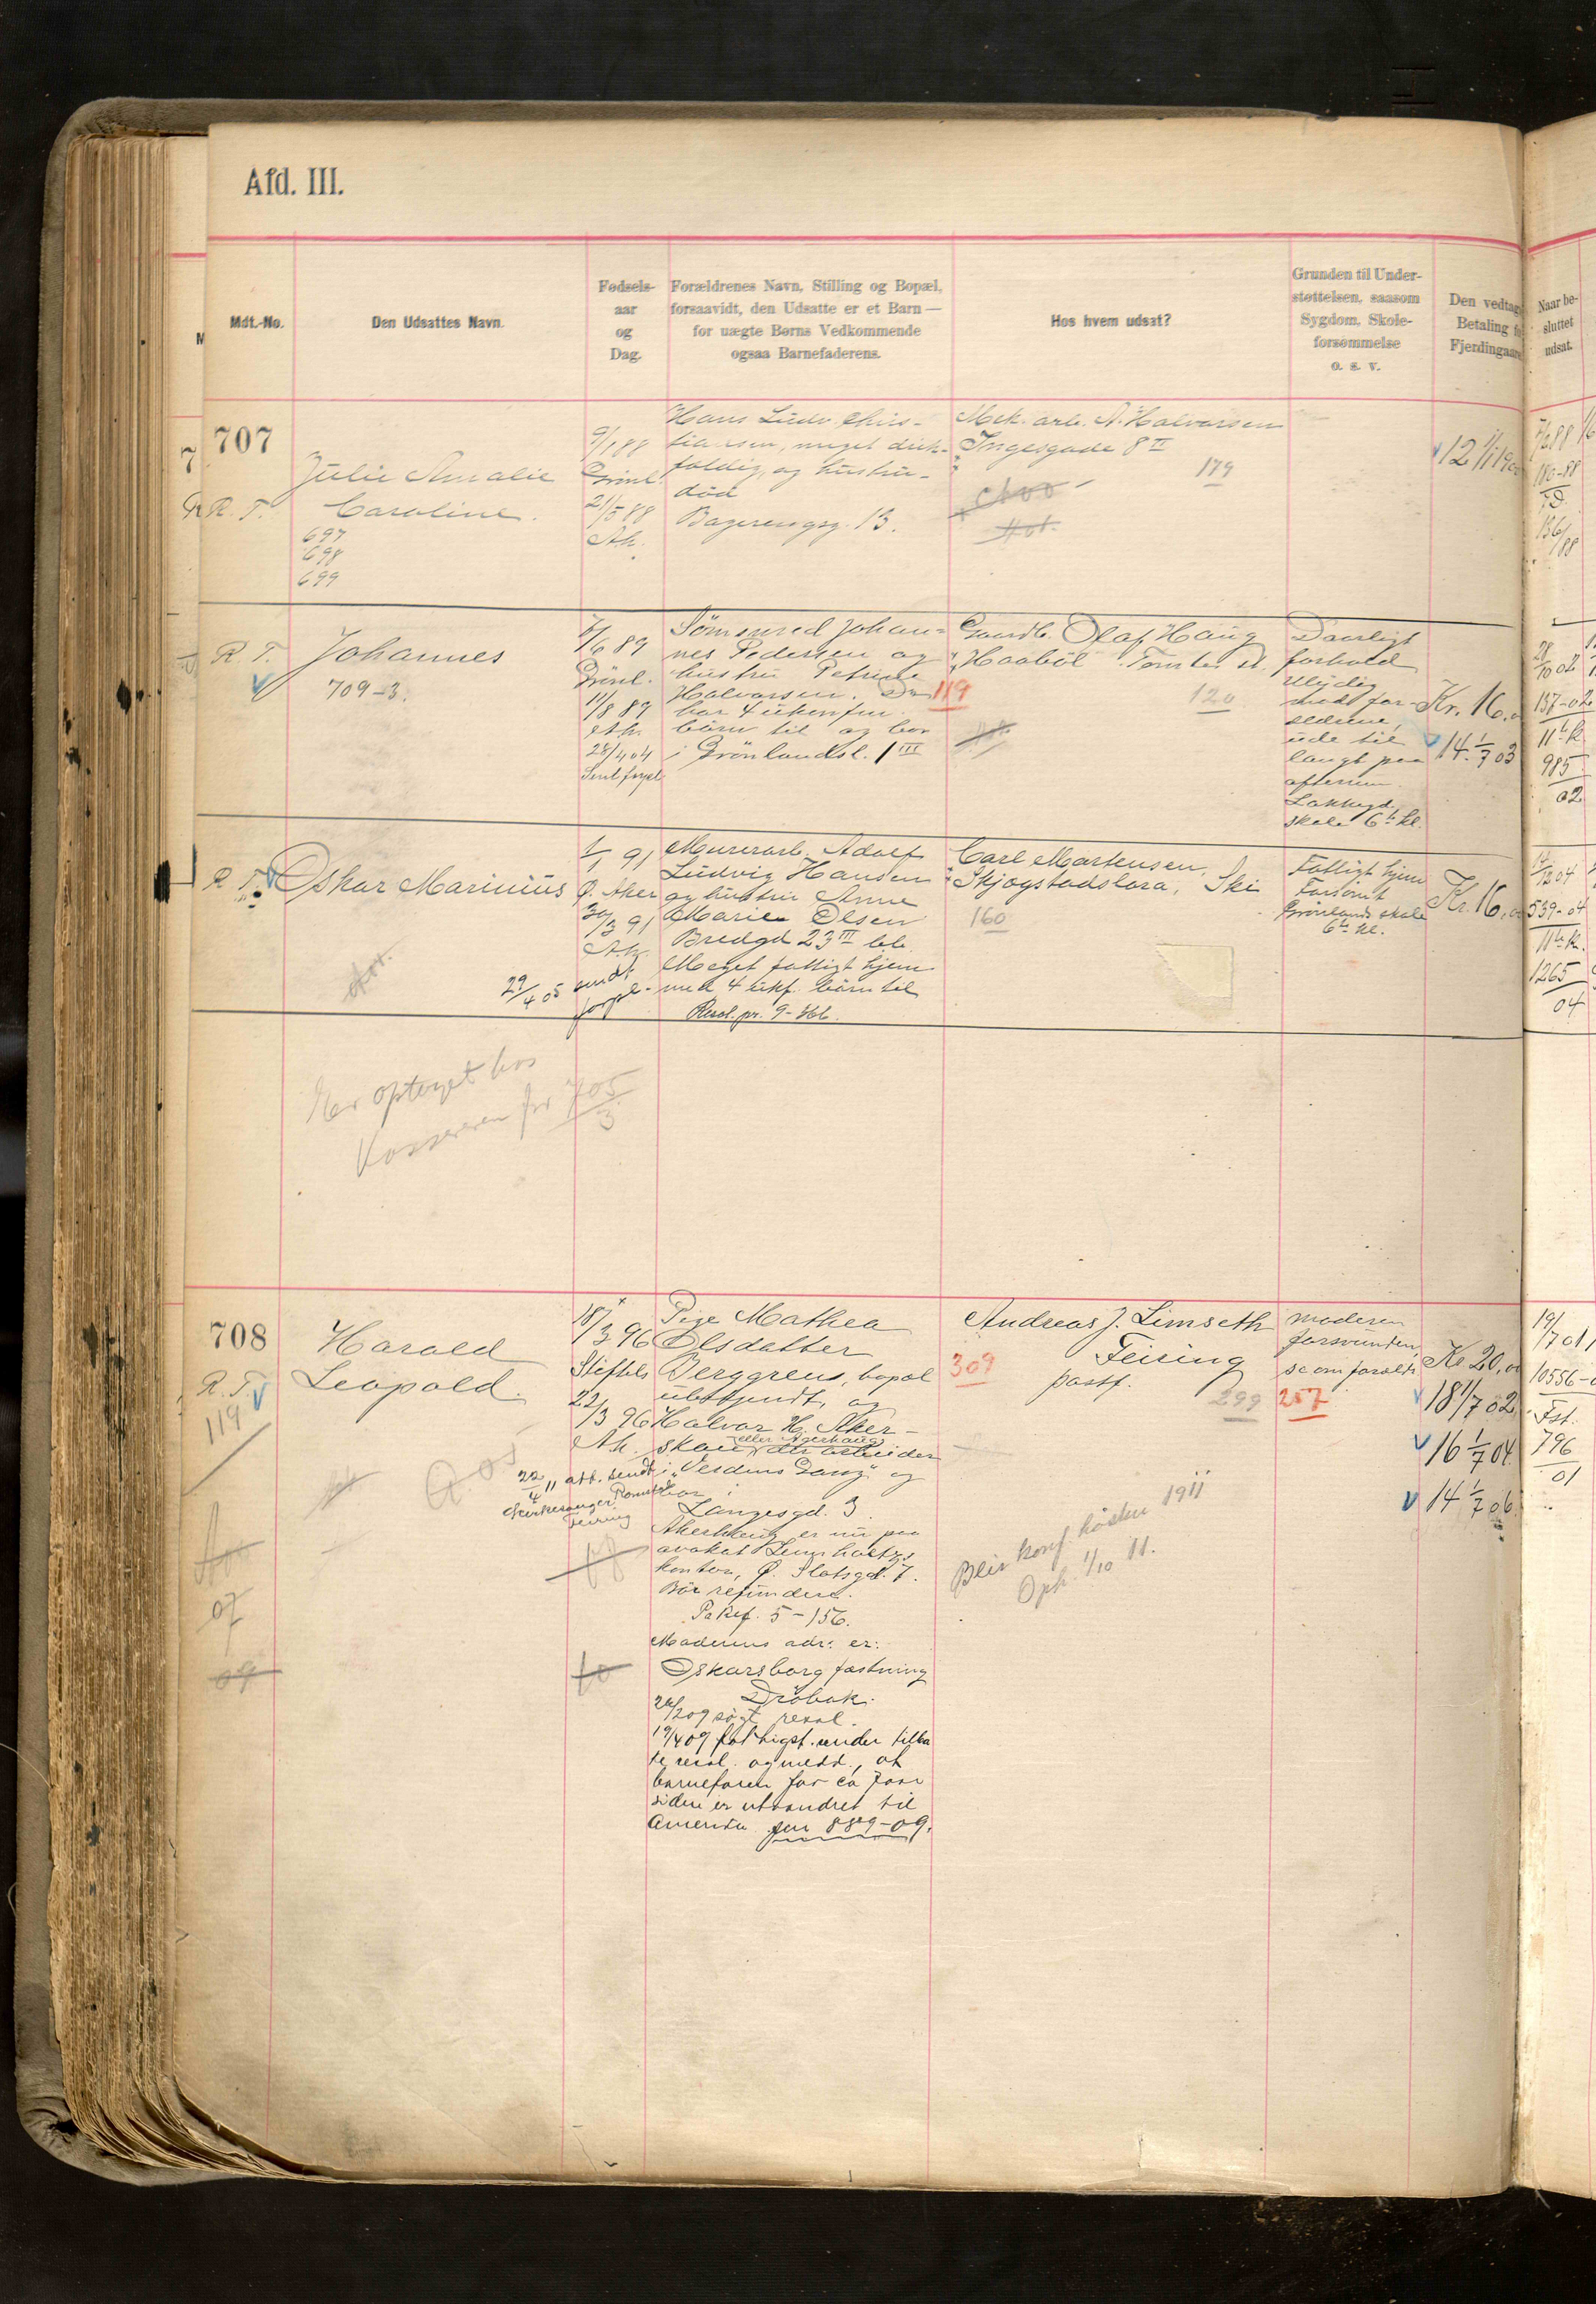 Afd. III.
Mdt.-No.
Den Udsattes Navn.
Fødsels-
aar
og
Dag.
Forældrenes Navn, Stilling og Bopæl,
forsaavidt, den Udsatte er et Barn —
for uægte Børns Vedkommende
ogsaa Barnefaderens.
Hos hvem udsat?
Grunden til Under-
støttelsen, saasom
Sygdom, Skole-
forsømmelse
o. s. v.
Den vedtag
Betaling fo
Fjerdingaar
Naar be-
sluttet
udsat.
707
R. T.
Julie Amalie
Caroline.
697
698
699
9/1 88
Grönl.
21/5 88
Ak.
Hans Ludv. Chris-
tiansen, meget drik-
faldig, og hustru-
död
Bagerengsg. 13.
Mek. arb. A. Halvorsen
Ingesgade 8 II
179
12 1/1 190
R. T.
Johannes
709-3.
7/6 89
Grönl.
11/8 89
Ak.
28/4 04
Sömsmed Johan-
nes Pedersen og
hustru Petrine
Halvorsen. De 119
har 4 ukonfir.
börn til og bor
i Grönlandsl. 1 III
Gaardb. Olaf Haug
Haaböl Tomter st.
120
Daarligt
forhold
Ulydig
mod for-
ældrene,
ude til
langt paa
aftenen.
Lakkegd.
skole 6te kl.
Kr. 16.
14. 1/7 03
28/10 02
137-02
11te k.
985
02
R. T.
Oskar Marinius
1/1 91
Ø. Aker
30/3 91
Ak.
29/4 05 sendt
Murerarb. Adolf
Ludvig Hansen
og hustru Anne
Marie Olsen
Bredgd 23 III
Meget fattigt hjem
med 4 ukf. börn til
Resol. pr. 9-
Carl Martensen,
Skjogstadslora, Ski
160
Fattigt hjem
Forsömt
Grönlands skole
6te kl.
Kr. 16,
539-04
11te k.
1265
04
Er optaget hos
Kassereren for 705
3
708
R. T.
119
07
09
Harald
Leopold.
18/3 96
Stiftels
22/3 96
Ak.
22/4 11 att. sendt
Kirkesanger
Feiring
Pige Mathea
Olsdatter
Berggren, bopæl
ubekjendt, og
Halvor H. Aker-
eller Agerhaug
skau, der arbeider
i "Verdens Gang" og
bor i
Langesgd. 3.
Akerhaug er nu paa
kontor, Ø. Slotsgd. 7.
Bör refundere.
Pa Ref. 5-156.
Moderens adr. er:
Oskarsborg fæstning
Dröbak.
24/2 09 sögt resol.
19/4 09 fattigst. sender tilba
ke resol. og medd., at
barnefaren for ca 7 aar
siden er utvandret til
Amerika jnr 889-09.
Andreas J. Limseth
Feiring
postf.
309
299
257
Blir konf. hösten 1911
Oph. 1/10 11.
moderen
forsvunden,
Kr 20,
18 1/7 02
16 1/7 04
14 1/7 06
19/7 01
10556-0
Fst.
796
01